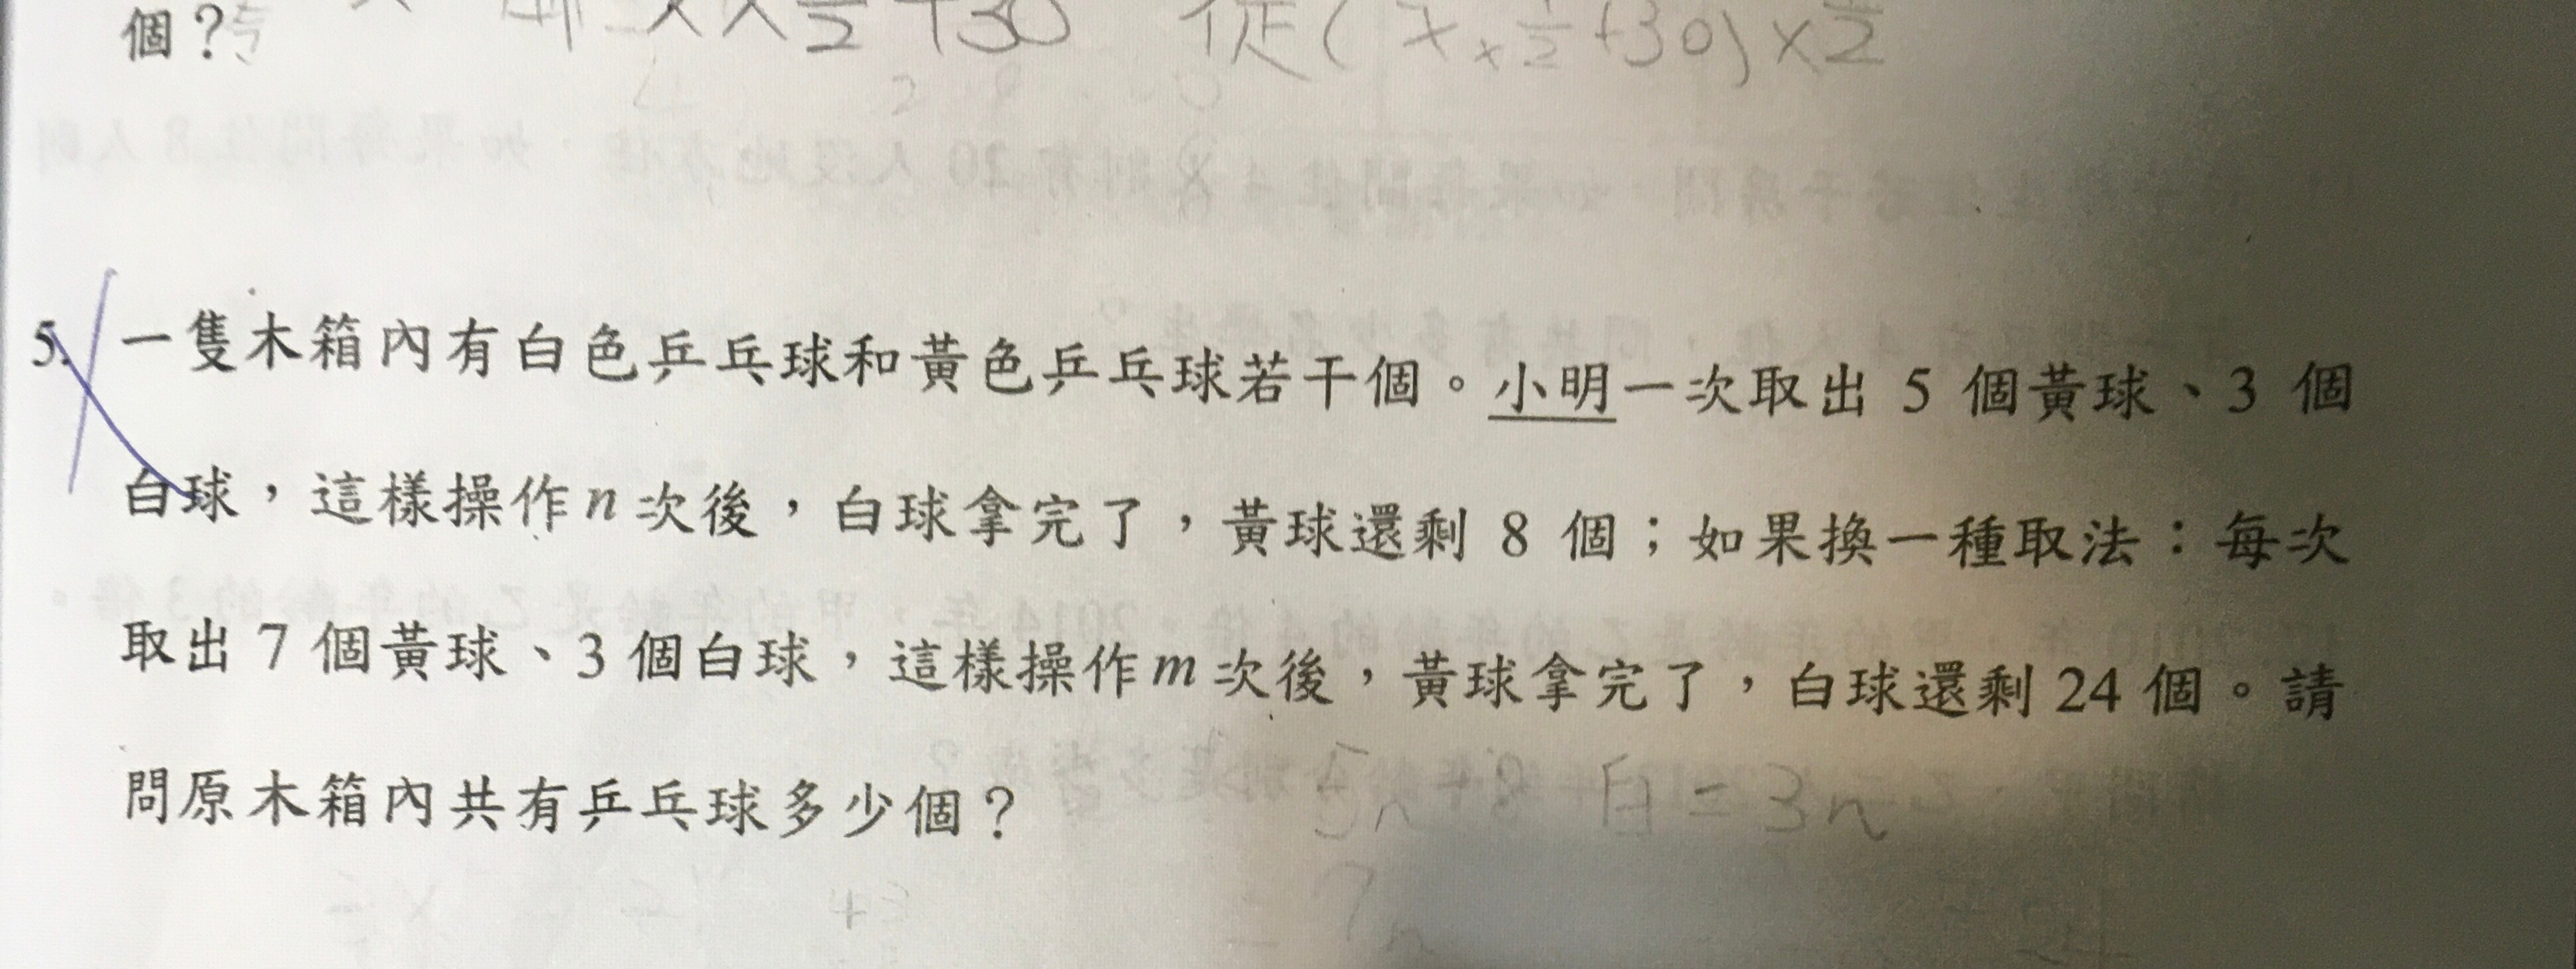 個？ X × 1/2 +30 從( X × 1/2 +30) × 1/2
5. 一隻木箱內有白色乒乓球和黃色乒乓球若干個。小明一次取出 5 個黃球、3 個
白球，這樣操作 n 次後，白球拿完了，黃球還剩 8 個；如果換一種取法：每次
取出 7 個黃球、3 個白球，這樣操作 m 次後，黃球拿完了，白球還剩 24 個。請
問原木箱內共有乒乓球多少個？
5n+8 白=3n
7n